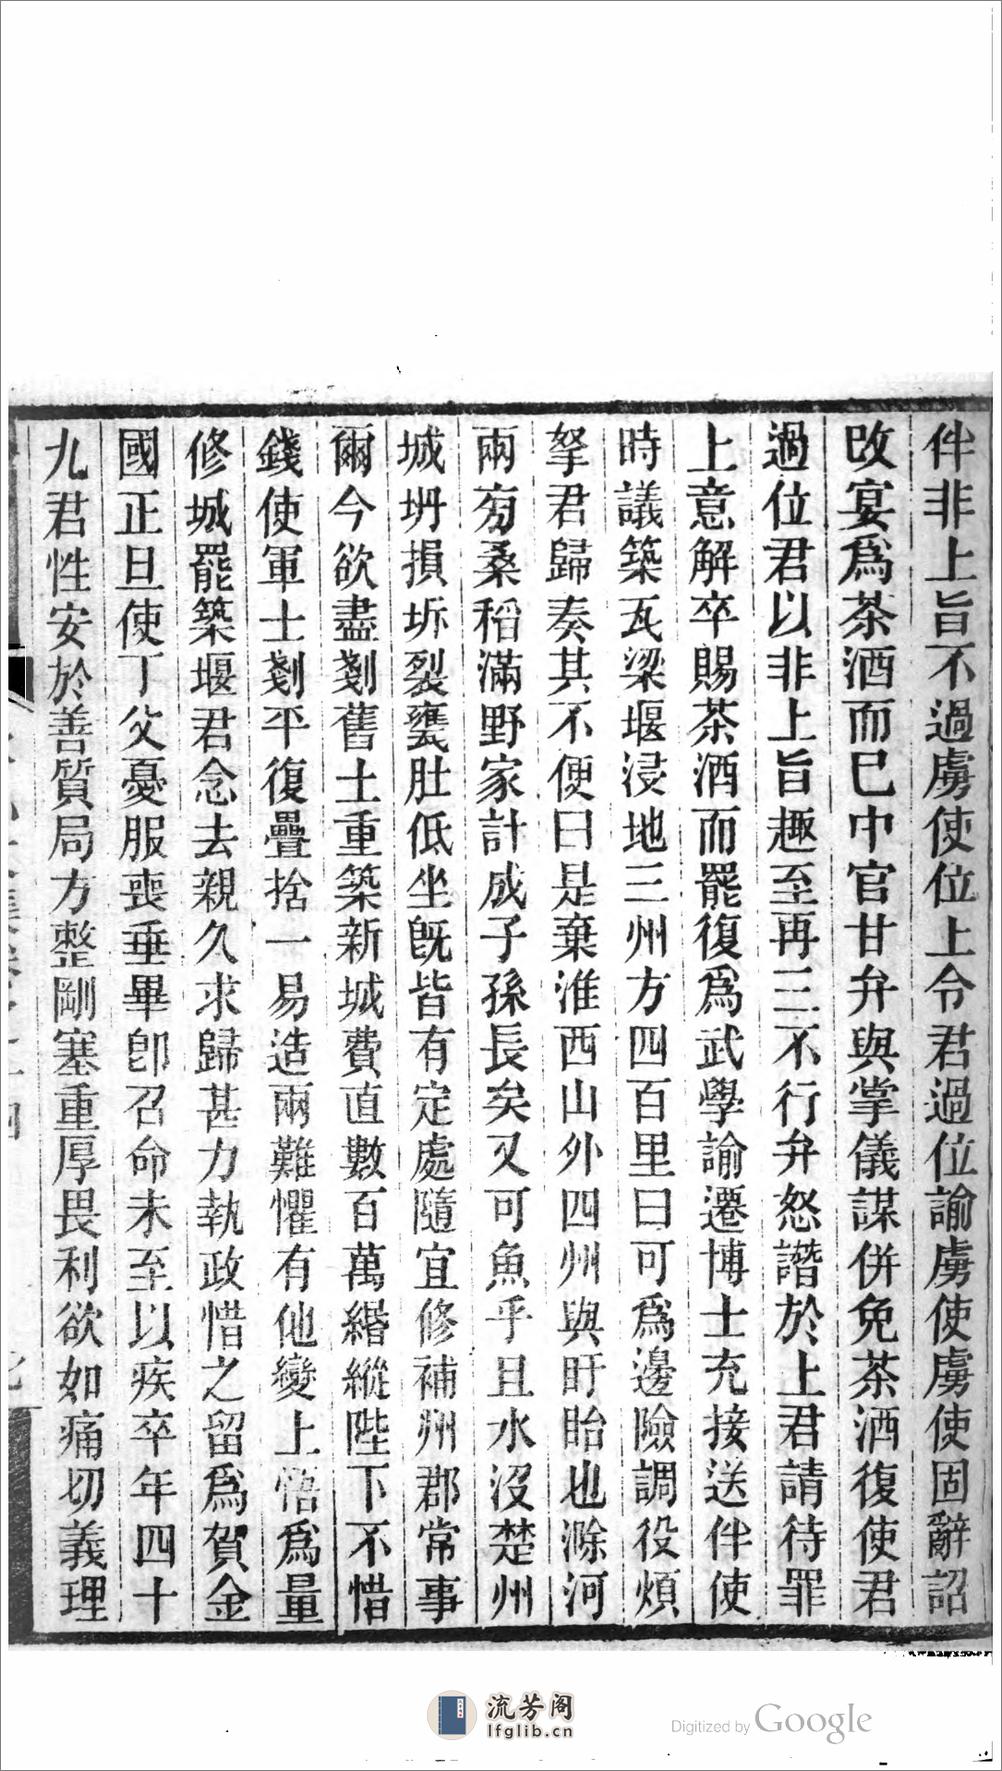 伴非上旨不過虜使位上令君過位諭虜使虜使固辭詔
改宴爲茶酒而巳中官甘弁與掌儀謀併免茶酒復使君
過位君以非上旨趣至再三不行弁怒譖於上君請待罪
上意解卒賜茶酒而罷復爲武學諭遷博士充接送伴使
時議築瓦梁堰浸地三州方四百里曰可爲邊險調役煩
拏君歸奏其不便曰是棄淮西山外四州與盱眙也滁河
兩旁桑稻滿野家計成子孫長矣又可魚乎且水沒楚州
城坍損坼裂甕肚低坐旣皆有定處隨宜修補州郡常事
爾今欲盡剗舊土重築新城費直數百萬緡縱陛下不惜
錢使軍士剗平復疊捨一易造兩難懼有他變上悟爲量
修城罷築堰君念去親久求歸甚力執政惜之留爲賀金
國正旦使丁父憂服喪垂畢卽召命未至以疾卒年四十
九君性安於善質局方整剛塞重厚畏利欲如痛切義理
流芳阁
lfglib.cn
Digitized by Google